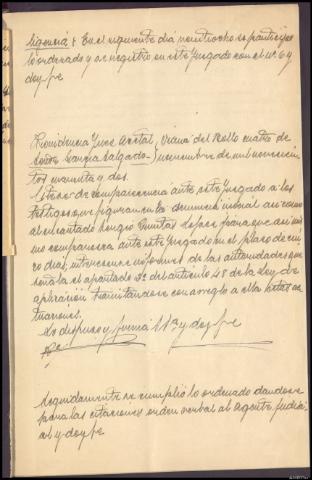 ligencia = En el siguiente día nventiocho se participa
lo ordenado y se registro en este Juzgado con el nº 6 y
doy fe
Providencia Juez Acctal. Viana del Bollo cuatro de
Señor García Salgado - noviembre de mil novecien
tos cuarenta y dos.
Citese de comparecencia ante este Juzgado a los
testigos que figuran en la denuncia inicial asi como
al encartado Sergio Lopez para que asi mis
mo comparezca ante este Juzgado en el plazo de cin
co dias, interesense informes de las autoridades que
señala el apartado 3º del artículo 48 de la Ley de
aplicación tramitandose con arreglo a ella estas ac
tuaciones.
Lo dispuso y firma S.Sª y doy fe
Seguidamente se cumplió lo ordenado dandose
para las citaciones orden verbal al Agente Judici
al y doy fe